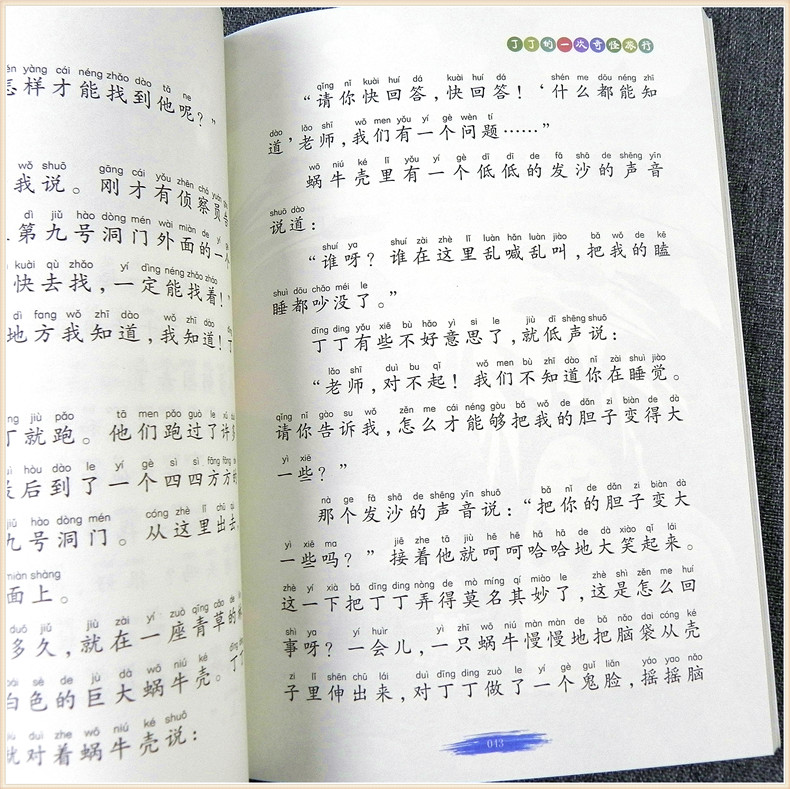 yàng cái néng zhǎo dào tā ne
怎样才能找到他呢？”
wǒ shuō gāng cái yǒu zhēn chá yuán
我说。刚才有侦察员
dì jiǔ hào dòng mén wài miàn de yí gè
第九号洞门外面的一个
kuài qù zhǎo yí dìng néng zhǎo zháo
快去找，一定能找着！”
dì fang wǒ zhī dào wǒ zhī dào
地方我知道，我知道！
jiù pǎo tā men pǎo guò le xǔ duō
丁就跑。他们跑过了许多
hòu dào le yí gè sì sì fāng fāng de
最后到了一个四四方方的
jiǔ hào dòng mén cóng zhè lǐ chū qù
九号洞门。从这里出去，
miàn shàng
面上。
duō jiǔ jiù zài yí zuò qīng cǎo de
多久，就在一座青草的
bái sè de jù dà wō niú ké
白色的巨大蜗牛壳。丁
duì zhe wō niú ké shuō
就对着蜗牛壳说：
丁丁的一次奇怪旅行
qǐng nǐ kuài huí dá kuài huí dá shén me dōu néng zhī
“请你快回答，快回答！‘什么都能知
dào lǎo shī wǒ men yǒu yí gè wèn tí
道’老师，我们有一个问题……”
wō niú ké lǐ yǒu yí gè dī dī de fā shā de shēng yīn
蜗牛壳里有一个低低的发沙的声音
shuō dào
说道：
shuí ya shuí zài zhè lǐ luàn hǎn luàn jiào bǎ wǒ de kē
“谁呀？谁在这里乱喊乱叫，把我的瞌
shuì dōu chǎo méi le
睡都吵没了。”
dīng ding yǒu xiē bù hǎo yì si le jiù dī shēng shuō
丁丁有些不好意思了，就低声说：
lǎo shī duì bu qǐ wǒ men bù zhī dào nǐ zài shuì jiào
“老师，对不起！我们不知道你在睡觉。
qǐng nǐ gào su wǒ zěn me cái néng gòu bǎ wǒ de dǎn zi biàn dà
请你告诉我，怎么才能够把我的胆子变得大
yì xiē
一些？”
nà ge fā shā de shēng yīn shuō bǎ nǐ de dǎn zi biàn dà
那个发沙的声音说：“把你的胆子变大
yì xiē ma jiē zhe tā jiù hē hē hā hā de dà xiào qǐ lái
一些吗？”接着他就呵呵哈哈地大笑起来。
zhè yí xià bǎ dīng ding nòng de mò míng qí miào le zhè shì zěn me huí
这一下把丁丁弄得莫名其妙了，这是怎么回
shì ya yí huìr yì zhī wō niú màn màn de bǎ nǎo dai cóng ké
事呀？一会儿，一只蜗牛慢慢地把脑袋从壳
zi lǐ shēn chū lái duì dīng ding zuò le yí gè guǐ liǎn yáo yao nǎo
子里伸出来，对丁丁做了一个鬼脸，摇摇脑
043